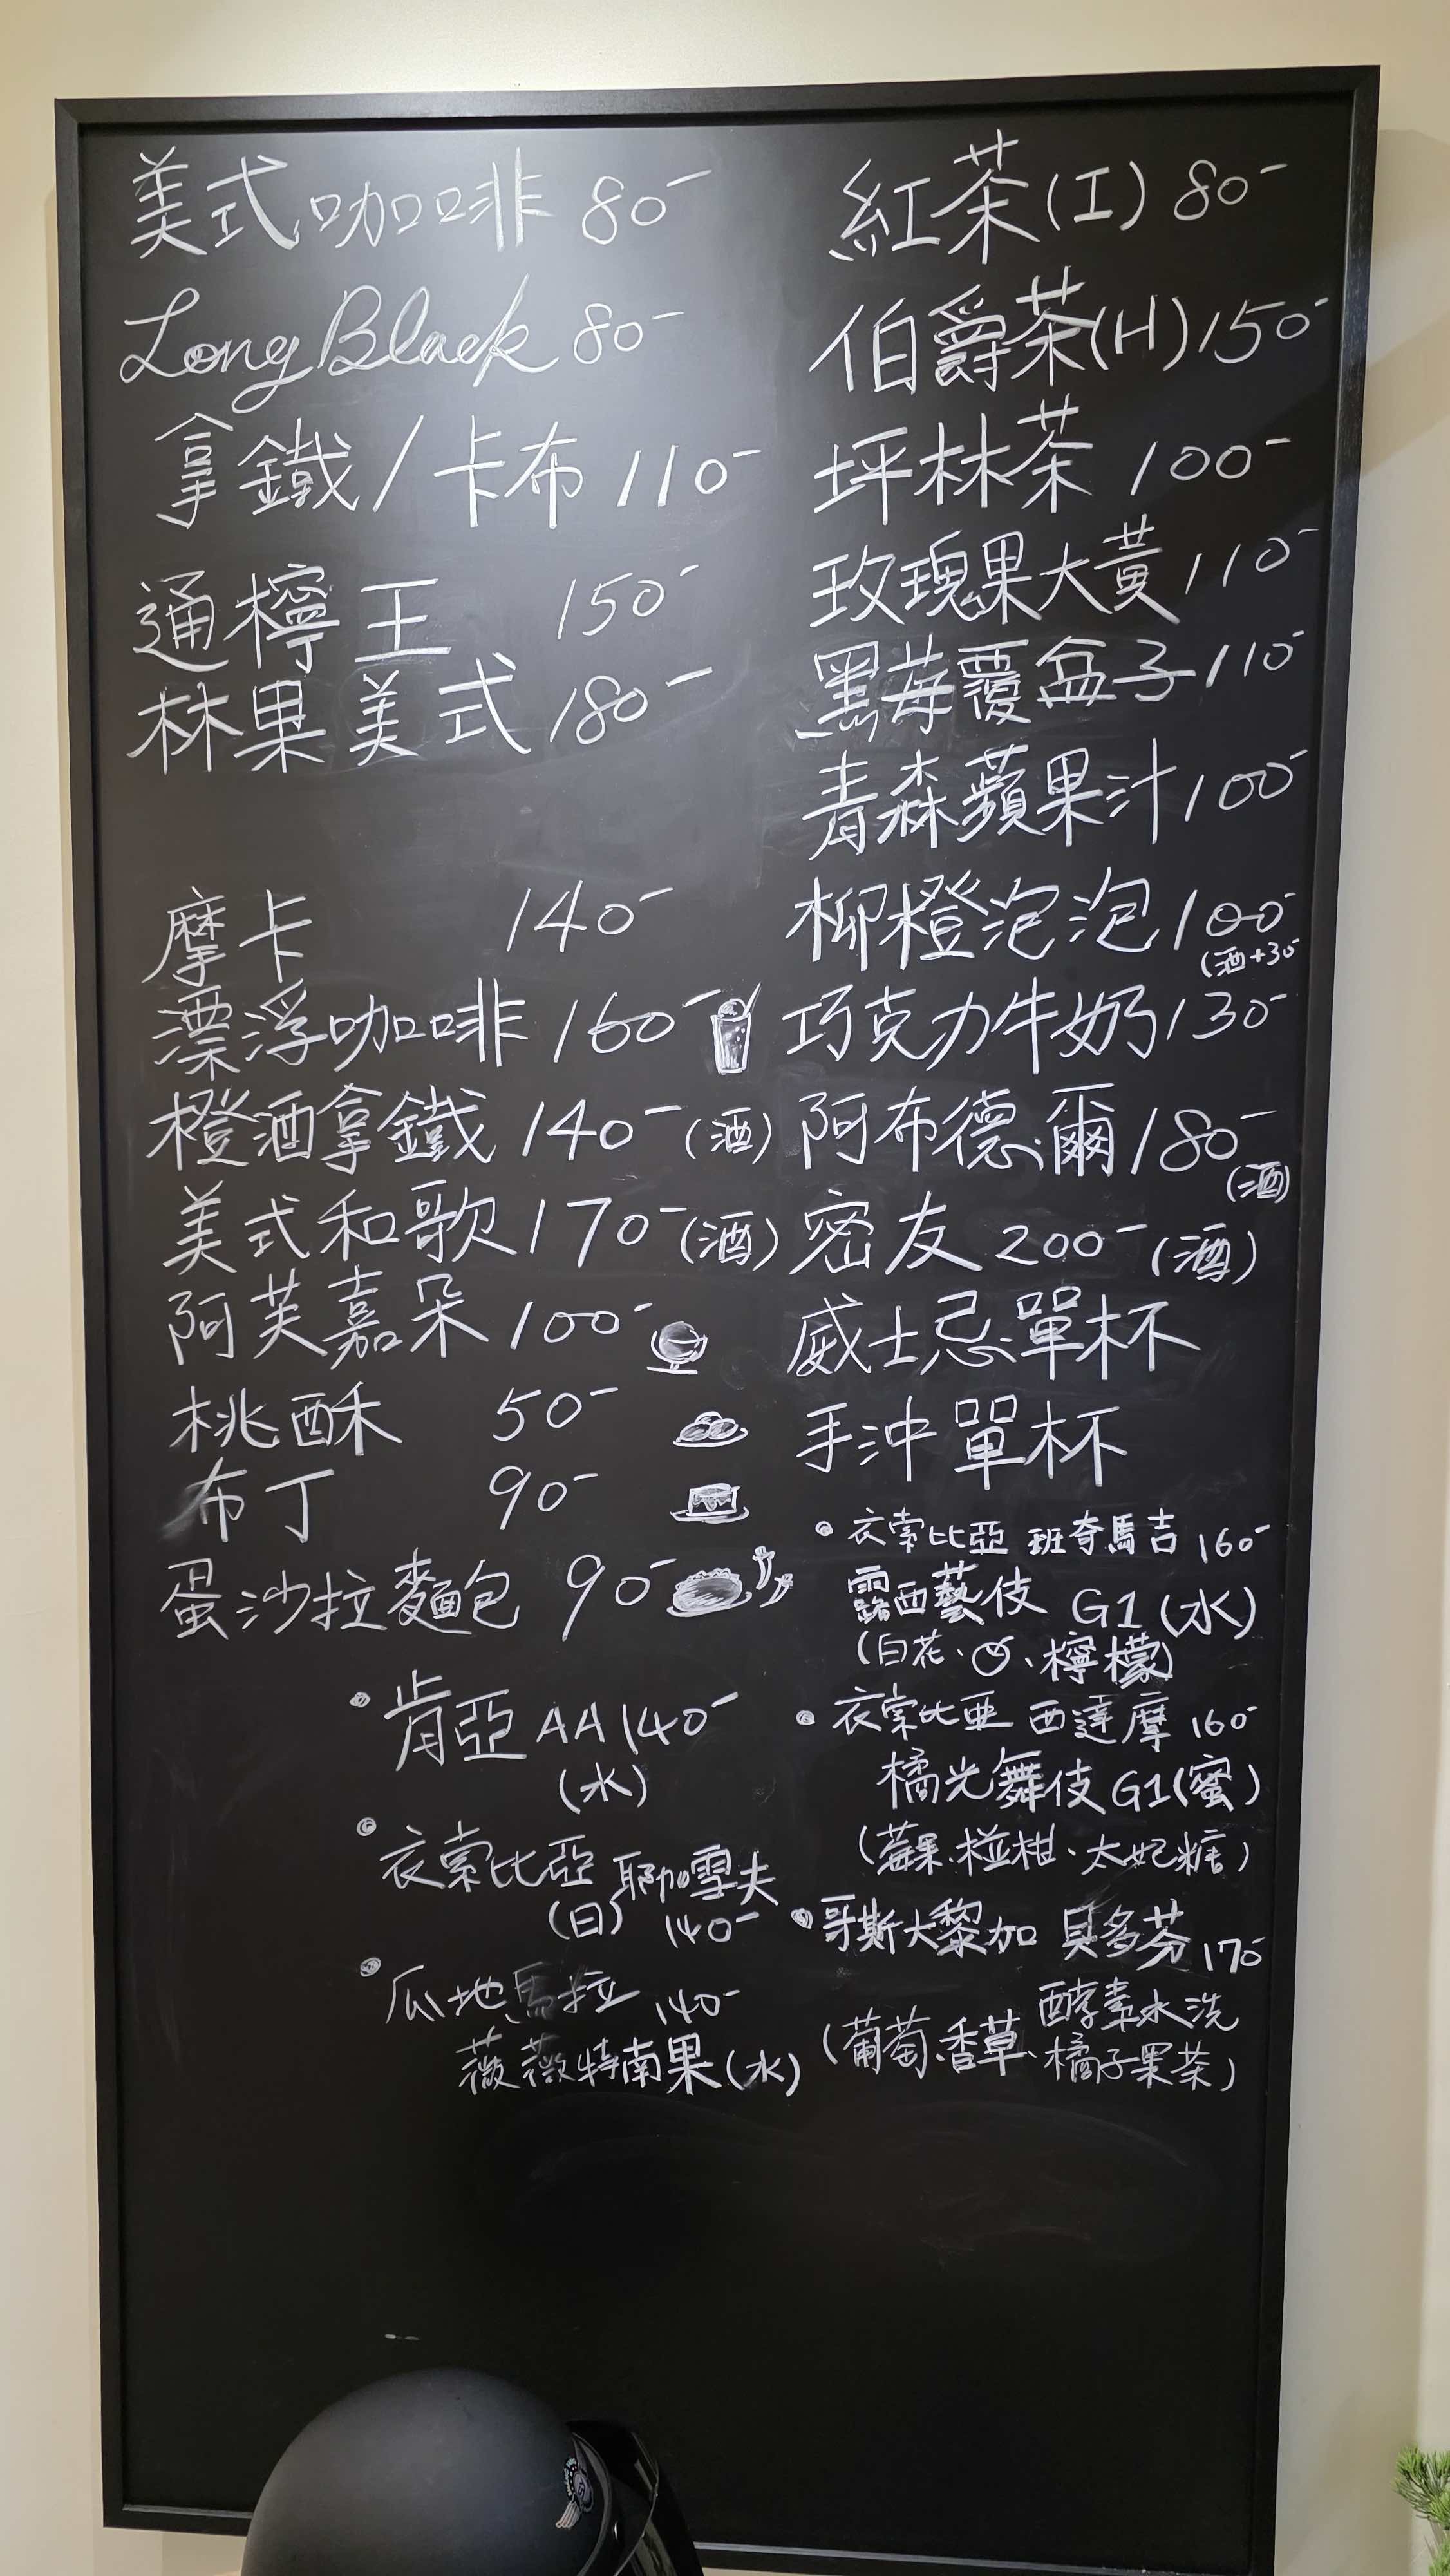 美式咖啡 80-
Long Black 80-
拿鐵/卡布 110-
通檸王 150-
林果美式 180-
摩卡 140-
漂浮咖啡 160-
橙酒拿鐵 140-(酒)
美式和歌 170-(酒)
阿芙嘉朵 100-
桃酥 50-
布丁 90-
蛋沙拉麵包 90-
•肯亞 AA 140-
(水)
•衣索比亞 耶加雪夫
(日) 140-
•瓜地馬拉 140-
薇薇特南果(水)
紅茶(I) 80-
伯爵茶(H) 150-
坪林茶 100-
玫瑰果大黃 110-
黑莓覆盆子 110-
青森蘋果汁 100-
柳橙泡泡 100-
(酒+30-
巧克力牛奶 130-
阿布德爾 180-
(酒)
密友 200-(酒)
威士忌單杯
手沖單杯
•衣索比亞 班奇馬吉 160-
露西藝伎 G1(水)
(白花、、檸檬)
•衣索比亞 西達摩 160-
橘光舞伎 G1(蜜)
(莓果、椪柑、太妃糖)
•哥斯大黎加 貝多芬 170-
酵素水洗
(葡萄、香草、橘子果茶)